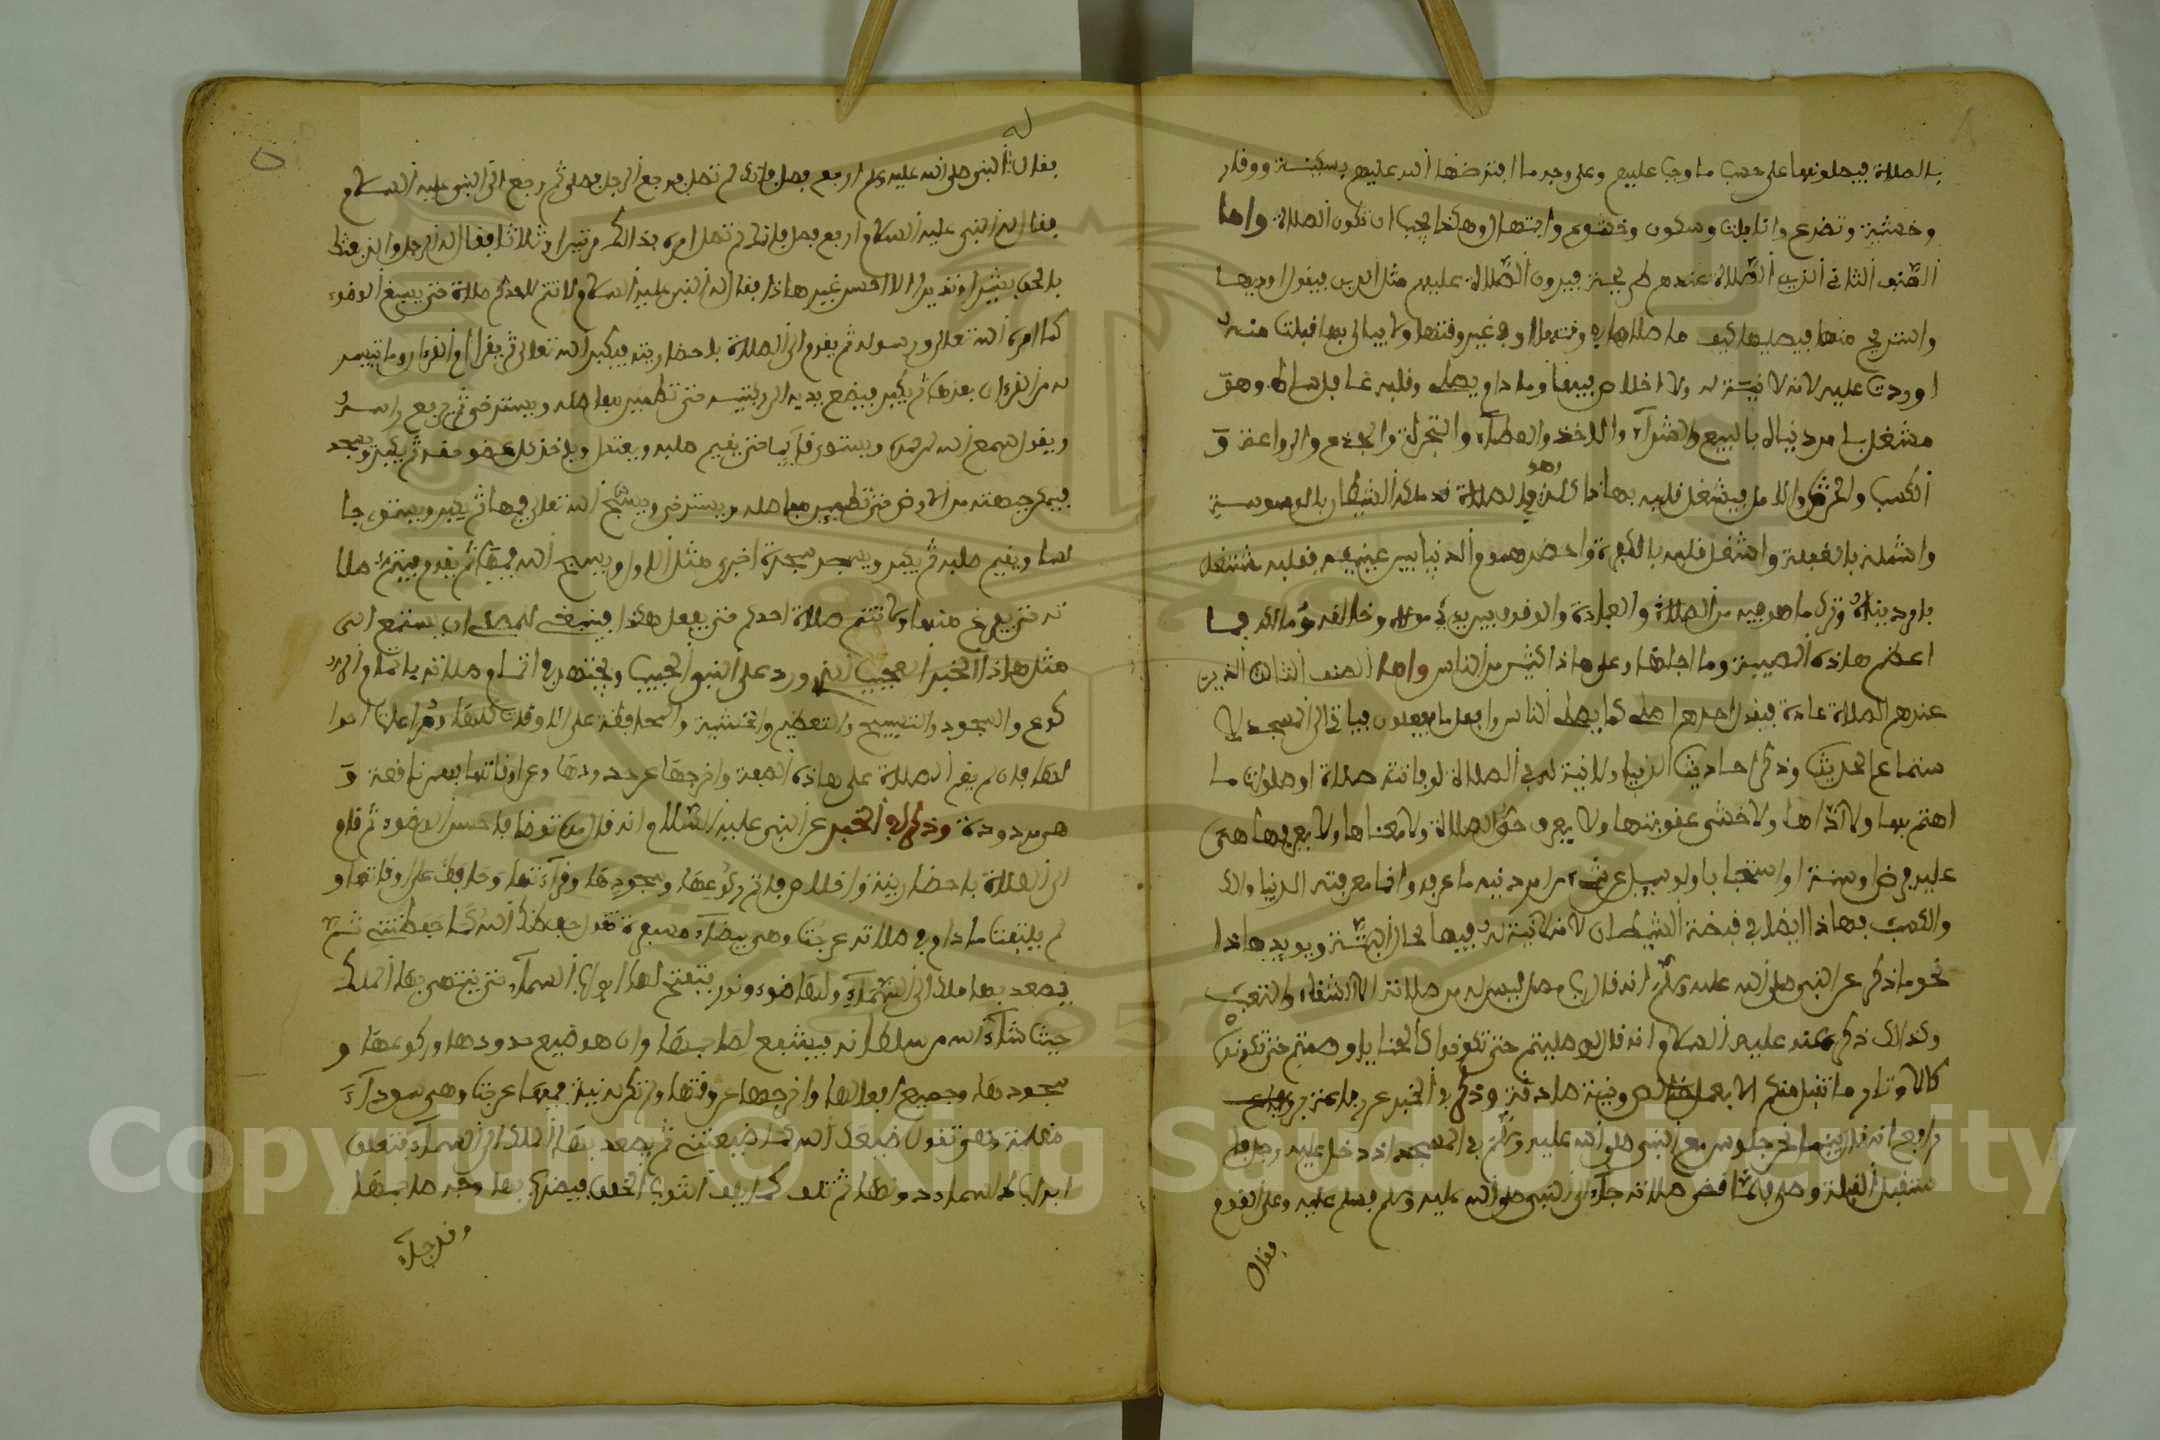 بالصلاة فيصلونها على حسب ما وجب عليهم وعلى وجه ما افترضها الله عليهم بسكينة ووقار
وخشية وتضرع وانابة وسكون وخشوع وابتهال وهكذا يجب ان تكون الصلاة واما
الصنف الثاني الذين الصلاة عندهم فيرون الصلاة عليهم مثل الدين فيقول اوديها
واستريح منها فيصليها كيف ما صلاها في وقتها او في غير وقتها ولا يبالي بها قبلت منه
او ردت عليه لانه لا نية له ولا اخلاص فيها وما دام يصلي وقلبه غافل ساه وهو
مشغل بامر دنياه بالبيع والشراء والاخذ والعطاء والتجرة والزراعة و
الكسب والحرث والامل فيشغل قلبه بهذا كله وهو في الصلاة قد ملكه الشيطان بالوسوسة
واشمله بالغفلة واشغل قلبه بالفكرة واحضر هموم الدنيا بين عينيه فقلبه مشتغل
بامر دنياه وترك ما هو فيه من الصلاة والعبادة والوقوف بين يدي مولاه وخالقه ومالكه فما
اعظم هاذه المصيبة وما اجلها وعلى هاذا اكثر من الناس واما الصنف الثالث الذين
عندهم الصلاة عادة فيقول احدهم اصلي كما يصلي الناس وافعل ما يفعلون فياتي الى المسجد لا
ستماع الحديث وذكر احاديث الدنيا ولا نية له في الصلاة لو فاتته صلاة او صلوات ما
اهتم بها ولا اداها ولا خشي عقوبتها ولا يعرف حق الصلاة ولا معناها ولا يعرفها هي
عليه فرض او سنة او استحبابا ولو سيل عن شيء من امر دينه ما عرفه وانما معرفته الدنيا
والكسب فهاذا ايضا في قبضة الشيطان لانه لا نية له فيها بحال البتة ويويد هاذا
نحو ما ذكر عن النبي صلى الله عليه وسلم انه قال رب مصل ليس له من صلاته الا الشقاء والتعب
وكذلك ذكر عنه عليه السلام انه قال لو صليتم حتى تكونوا كالحنايا وصمتم حتى تكونوا
كالاوتار ما تقبل منكم الا بعمل خالص ونية صادقة وذكر في الخبر عن رفاعة بن
رافع انه قال بينما نحن جلوس مع النبي صلى الله عليه وسلم في المسجد اذ دخل عليه رجل
ستقبل القبلة وصلى فلما قضى صلاته جاء الى النبي صلى الله عليه وسلم فسلم عليه وعلى القوم
فقال
فقال له النبي صلى الله عليه وسلم ارجع فصل فانك لم تصل فرجع الرجل فصلى ثم رجع الى النبي عليه السلام
فقال له النبي عليه السلام ارجع فصل فانك لم تصل امره بذالك مرتين او ثلاثا فقال له الرجل والذي بعثك
بالحق بشيرا ونذيرا لا احسن غير هاذا فقال له النبي عليه السلام لا تتم لاحدكم صلاة حتى يسبغ الوضوء
كما امره الله تعالى ورسوله ثم يقوم الى الصلاة باحضار نية فيكبر الله تعالى ثم يقرا ام القرءان وما تيسر
له من القرءان بعدها ثم يكبر فيضع يديه الى ركبتيه حتى تطمين مفاصله ويسترخي ثم يرفع راسه
ويقول سمع الله لمن حمده ويستوي قائما حتى يقيم صلبه ويعتدل وياخذ كل عضو حقه ثم يكبر ويسجد
فيمكن جبهته من الارض حتى تطمين مفاصله ويسترخي ويسبح الله تعالى فيها ثم يكبر ويستوي جا
لسا ويقيم صلبه ثم يكبر ويسجد سجدة اخرى مثل الاولى ويسبح الله فيها ثم يقوم فيتم صلا
ته حتى يفرغ منها ولا تتم صلاة احدكم حتى يفعل هكذا فينبغي للمصلي ان يستمع الى
مثل هاذا الخبر العجيب الذي ورد على النبي الحبيب ويجتهد في اتمام صلاته باتمام الر
كوع والسجود والتسبيح والتعظيم والخشية والمحافظة على الاوقات
لها فان لم يقم الصلاة على هاذه الصفة واخرجها عن حدودها وعن اوقاتها فغير نافعة و
هي مردودة وذكر في الخبر عن النبي عليه السلام انه قال من توضا فاحسن الوضوء ثم قام
الى الصلاة باحضار نية واخلاص فاتم ركوعها وسجودها وقراءتها وحافظ على اوقاتها و
لم يلتفت ما دام في صلاته عرجت وهي بيضاء مسفرة تقول حفظك الله كما حفظتني ثم
يصعد بها ملك الى السماء ولها ضوء ونور يتفتح لها ابواب السماء حتى ينتهي بها الملك
حيث شاء الله من سلطانه فيشفع لصاحبها وان هو ضيع حدودها وركوعها و
سجودها وجميع افعالها واخرجها عن وقتها ولم تكن نية فيها عرجت وهي سوداء
مظلمة وهي تقول ضيعك الله كما ضيعتني ثم يصعد بها الملك الى السماء فتغلق
ابواب السماء دونها ثم تلف كما يلف الثوب الخلق فيضرب بها وجه صاحبها
وقد جاء
Copyright © King Saud University
1957